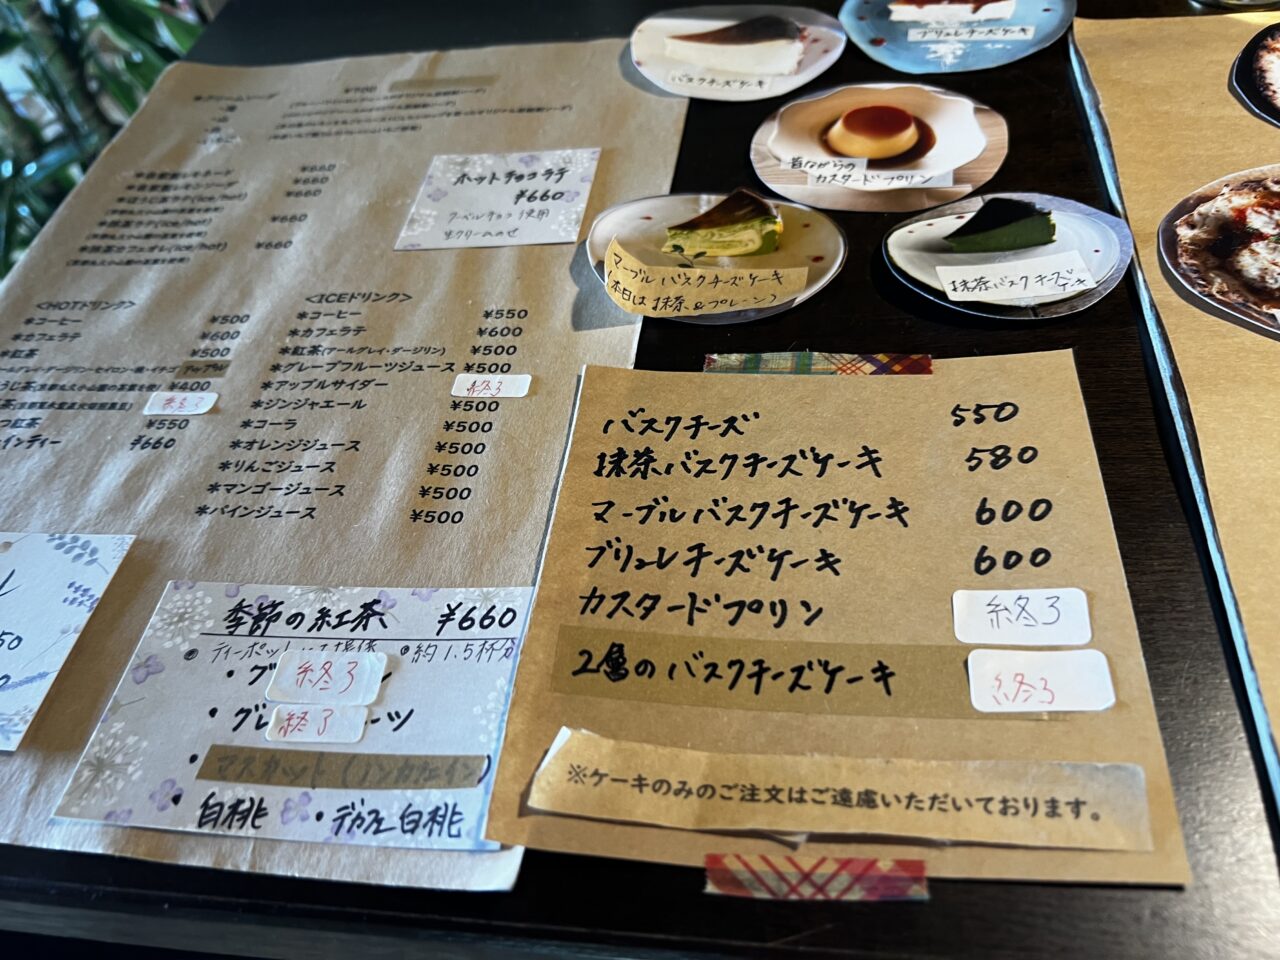 *クリームソーダ ¥700
*自家製レモネード ¥660
*自家製レモンソーダ ¥660
*ほうじ茶ラテ(ice/hot) ¥660
(京都丸久小山園の茶葉を使用)
*抹茶ラテ(ice/hot) ¥660
*抹茶カフェオレ(ice/hot) ¥660
ホットチョコラテ
¥660
クーベルチョコ使用
生クリームのせ
<HOTドリンク>
*コーヒー ¥500
*カフェラテ ¥600
*紅茶 ¥500
¥400
終了
つ紅茶 ¥550
インティー ¥660
<ICEドリンク>
*コーヒー ¥550
*カフェラテ ¥600
*紅茶(アールグレイ・ダージリン) ¥500
*グレープフルーツジュース ¥500
*アップルサイダー 終了
*ジンジャエール ¥500
*コーラ ¥500
*オレンジジュース ¥500
*りんごジュース ¥500
*マンゴージュース ¥500
*パインジュース ¥500
50
季節の紅茶 ¥660
約1.5杯分
・グ 終了 ン
・グレ 終了 ーツ
・マスカット(ノンカフェイン)
・白桃 ・デカフェ白桃
バスクチーズケーキ
ブリュレチーズケーキ
昔ながらの
カスタードプリン
マーブルバスクチーズケーキ
(本日は抹茶&プレーン)
抹茶バスクチーズ
ケーキ
バスクチーズ 550
抹茶バスクチーズケーキ 580
マーブルバスクチーズケーキ 600
ブリュレチーズケーキ 600
カスタードプリン 終了
2層のバスクチーズケーキ 終了
※ケーキのみのご注文はご遠慮いただいております。